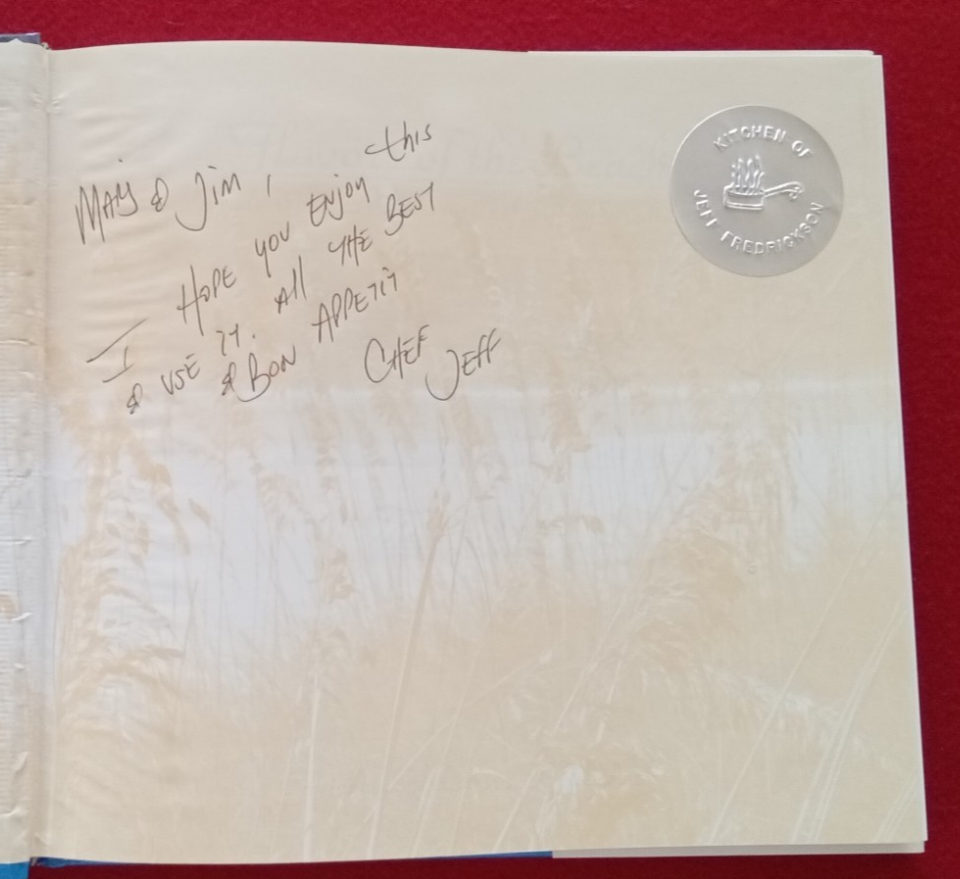 MAY & JIM,
I HOPE YOU ENJOY this
& USE IT. All THE BEST
& BON APPETIT
CHEF JEFF
KITCHEN OF
JEFF FREDRICKSON